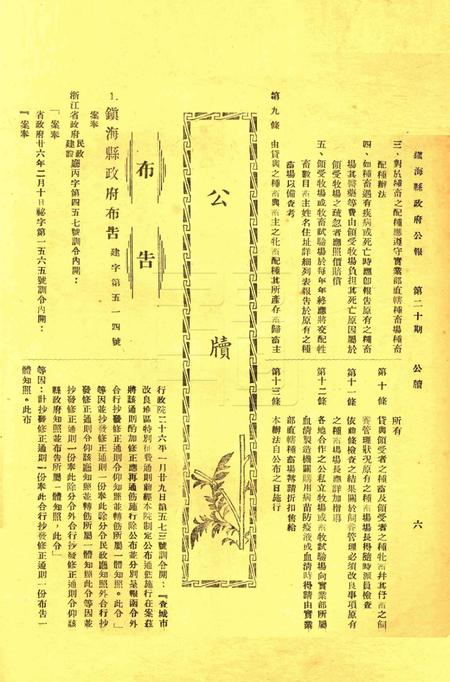 鎮海縣政府公報 第二十期 公牘 六
三、對於種畜之配種應遵守實業部直轄種畜場種畜
配種辦法
四、如種畜遇有疾病或死亡時應卽報告原有之種畜
場其醫藥等費由領受牧場負担其死亡原因屬於
領受牧場之疏忽者應照價賠償
五、領受牧場或牧畜試驗場於每年年終應將交配牲
畜數目畜主姓名住址詳細列表報告於原有之種
畜場以備查考
第九條 由貸與之種畜與畜主之牝畜配種其所產仔畜歸畜主
所有
第十條 貸與領受者之種畜及領受者之種牝畜幷其仔畜之飼
養管理狀況原有之種畜場場長得隨時派員檢查
第十一條 依前條檢查之結果關於飼養管理必須改良事項原有
之種畜場場長應詳加指導
第十二條 各地合作之公私立牧場或畜牧試驗場向實業部所屬
血清製造機關購用病苗防疫液或血清時得請由實業
部直轄種畜場轉請折扣價給
第十三條 本辦法自公布之日施行
公牘
布告
1.鎮海縣政府布告 建字第五一四號
案奉
浙江省政府民政廳建設丙字第四五七號訓令內開:
「案奉
省政府廿六年二月十日祕字第一五六五號訓令內開:
『案奉
行政院二十六年一月廿九日第五七三號訓令開:『查城市
改良地區特別征費通則前經本院制定公布通飭施行在案茲
將該通則酌加修正應再通飭施行除公布並分別呈報函令外
合行抄發修正通則令仰知照並轉飭所屬一體知照。此令』
等因並抄發修正通則一份奉此除分令民政廳知照外合行抄
發修正通則令仰該廳知照並轉飭所屬一體知照此令等因並
抄發修正通則一份奉此除分令外合行抄發修正通則令仰該
縣政府知照並布告所屬一體知照。此令」
等因:計抄發修正通則一份奉此合行抄發修正通則一份布告一
體知照。此布